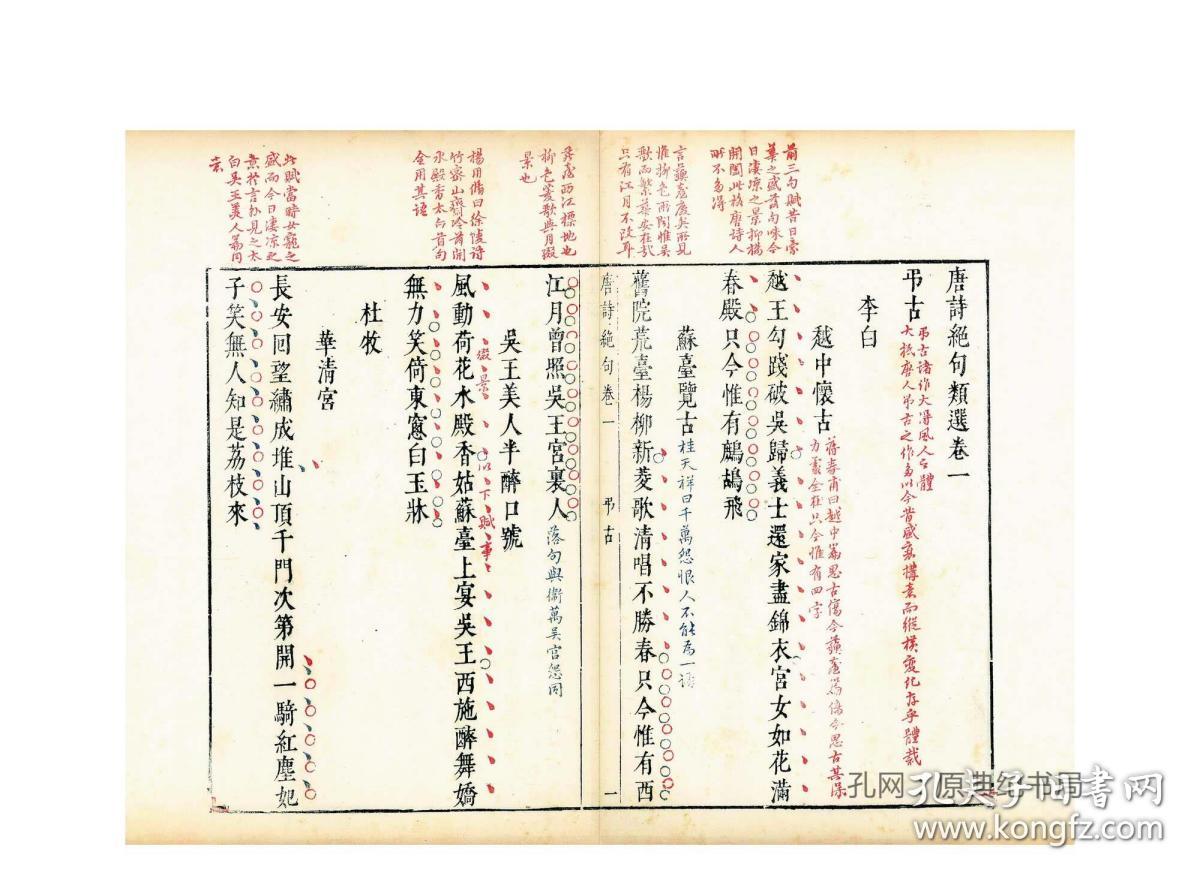 前三句賦昔日豪
華之盛落句咏今
日淒凉之景抑揚
開闔此格唐詩人
所不多得
唐詩絕句類選卷一
弔古
弔古諸作大得風人之體
大抵唐人弔古之作多以今昔盛衰構意而縱橫變化存乎體裁
李白
越中懷古
蔣春甫曰越中篇思古傷今蘇臺篇傷今思古其深
力處全在只今惟有四字
越王勾踐破吳歸義士還家盡錦衣宮女如花滿
春殿只今惟有鷓鴣飛
言蘇臺廢矣所見
惟柳色所聞惟吳
歌而繁華安在哉
只有江月不改耳
蘇臺覽古
桂天祥曰千萬怨恨人不能為一語
舊院荒臺楊柳新菱歌清唱不勝春只今惟有西
唐詩絕句卷一 弔古 一
西江標地也
柳色菱歌與月綴
景也
江月曾照吳王宮裏人
落句與衛萬吳宮怨同
楊用脩曰徐陵詩
竹密山齋冷荷開
水殿香太白首句
全用其語
吳王美人半醉口號
綴景
以下賦事
風動荷花水殿香姑蘇臺上宴吳王西施醉舞嬌
無力笑倚東窻白玉牀
杜牧
此賦當時女寵之
盛而今日淒凉之
意於言外見之太
白吳王美人篇同
意
華清宮
長安回望繡成堆山頂千門次第開一騎紅塵妃
子笑無人知是荔枝來
孔网 原典纸书局
孔夫子旧书网
www.kongfz.com